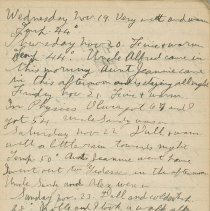 Wednesday Nov 19. Very wet and warm
Temp 44°
Thursday Nov 20. Fine & warm
Temp 44°. Uncle Alfred came in
this morning. Aunt Jeannie came
in this afternoon and is staying all night
Friday Nov 21. Fine & warm
In Physics I averaged 67 and
got 54. Uncle Sandy was in
Saturday Nov 22. Dull & warm
with a little rain towards night
Temp 50°. Aunt Jeannie went home
I went out to in the afternoon
Uncle Sandy and Alex were in
Sunday Nov 23. Dull and colder
and I took a walk after